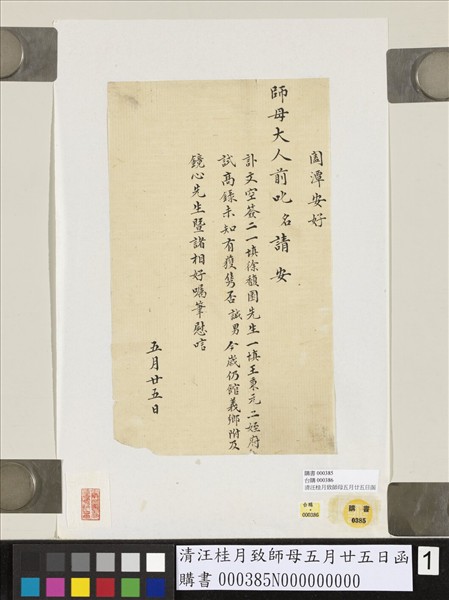 閤潭安好
師母大人前叱名請安
訃文空簽二一填徐馥園先生一填王東元二姪府
試高錄未知有獲雋否誠男今歲仍館義鄉附及
鏡心先生暨諸相好囑筆慰唁
五月廿五日
購書 000385
台購 000386
清汪桂月致師母五月廿五日函
台購
000386
購書
0385
清汪桂月致師母五月廿五日函
購書 000385N000000000
1